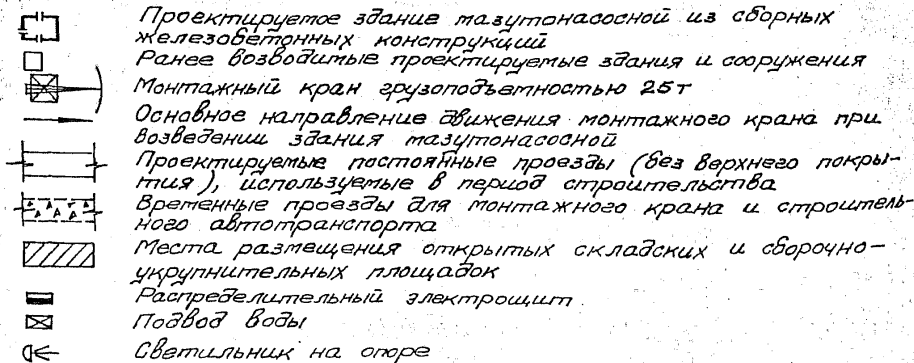 Проектируемое здание мазутонасосной из сборных
железобетонных конструкций
Ранее возводимые проектируемые здания и сооружения
Монтажный кран грузоподъемностью 25т
Основное направление движения монтажного крана при
возведении здания мазутонасосной
Проектируемые постоянные проезды (без верхнего покры-
тия), используемые в период строительства
Временные проезды для монтажного крана и строитель-
ного автотранспорта
Места размещения открытых складских и сборочно-
укрупнительных площадок
Распределительный электрощит
Подвод воды
Светильник на опоре